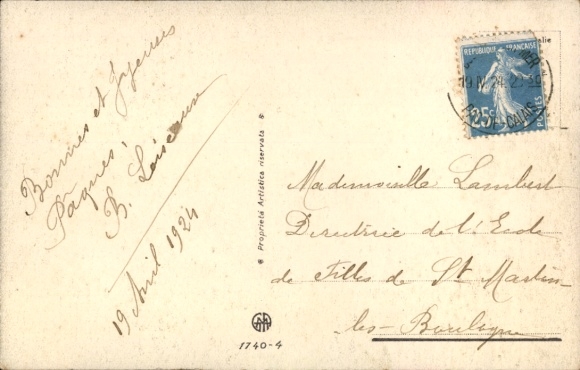 Bonnes et Joyeuses
Pâques!
19 Avril 1924
Proprietà Artistica riservata
1740-4
REPUBLIQUE FRANÇAISE
25c
POSTES
CALAIS
Mademoiselle Lambert
Directrice de l'Ecole
de Filles de St Martin-
les-Boulogne